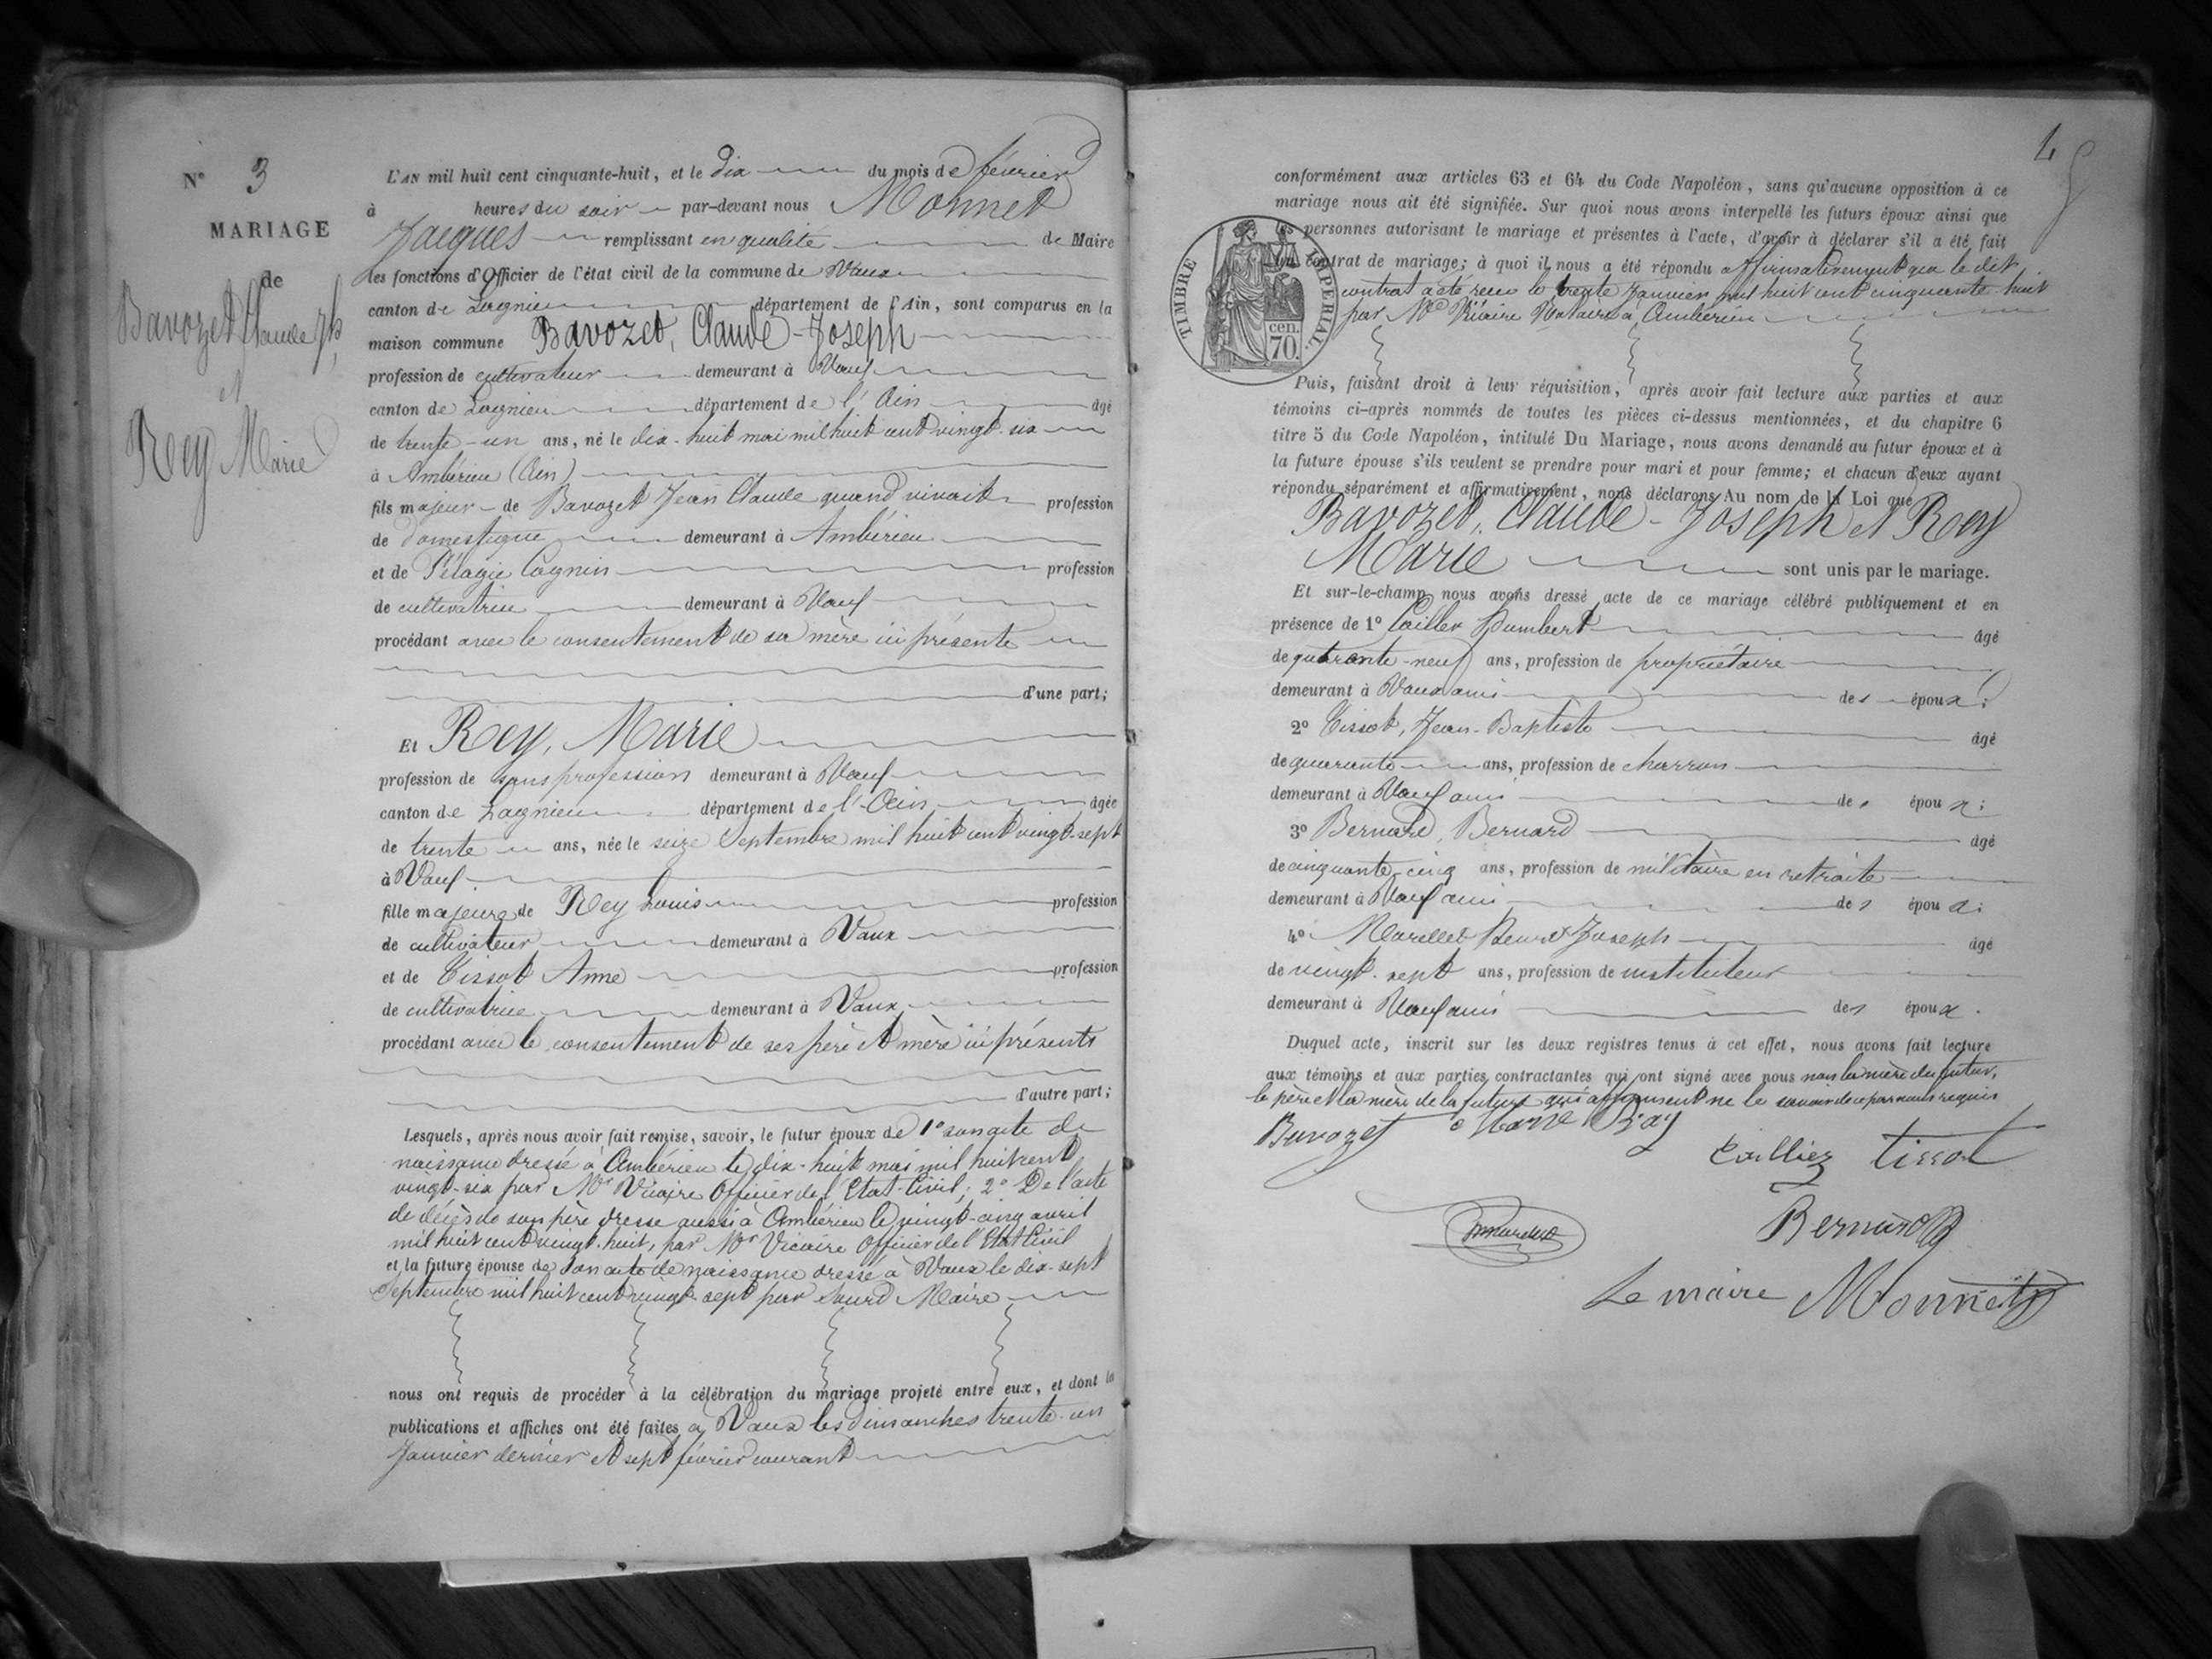 N° 3
MARIAGE
de
Bavozet Claude Jph
et
Rey Marie
L'AN mil huit cent cinquante-huit, et le dix du mois de février
à heures du soir par-devant nous Monnet
Jacques remplissant en qualité de Maire
les fonctions d'Officier de l'état civil de la commune de Vaux
canton de Lagnieu département de l'Ain, sont comparus en la
maison commune Bavozet, Claude-Joseph
profession de cultivateur demeurant à Vaux
canton de Lagnieu département de l'Ain âgé
de trente-un ans, né le dix-huit mai mil huit cent vingt-six
à Ambérieu (Ain)
fils majeur de Bavozet Jean Claude quand vivait profession
de domestique demeurant à Ambérieu
et de Pélagie Cognin profession
de cultivatrice demeurant à Vaux
procédant avec le consentement de sa mère ici présente
d'une part;
Et Rey, Marie
profession de sans profession demeurant à Vaux
canton de Lagnieu département de l'Ain âgée
de trente ans, née le seize Septembre mil huit cent vingt-sept
à Vaux
fille majeure de Rey Louis profession
de cultivateur demeurant à Vaux
et de Tissot Anne profession
de cultivatrice demeurant à Vaux
procédant avec le consentement de ses père et mère ici présents
d'autre part;
Lesquels, après nous avoir fait remise, savoir, le futur époux de 1° son acte de
naissance dressé à Ambérieu le dix-huit mai mil huit cent
vingt-six par Mr Vicaire Officier de l'Etat-Civil; 2° De l'acte
de décès de son père dressé aussi à Ambérieu le vingt-cinq avril
mil huit cent vingt-huit, par Mr Vicaire Officier de l'Etat Civil
et la future épouse de son acte de naissance dressé à Vaux le dix-sept
Septembre mil huit cent vingt-sept par Maire
nous ont requis de procéder à la célébration du mariage projeté entre eux, et dont la
publications et affiches ont été faites à Vaux les dimanches trente-un
Janvier dernier et sept février courant
4
conformément aux articles 63 et 64 du Code Napoléon, sans qu'aucune opposition à ce
mariage nous ait été signifiée. Sur quoi nous avons interpellé les futurs époux ainsi que
les personnes autorisant le mariage et présentes à l'acte, d'avoir à déclarer s'il a été fait
un contrat de mariage; à quoi il nous a été répondu affirmativement que le dit
contrat a été reçu le trente Janvier mil huit cent cinquante-huit
par Me Vicaire Notaire à Ambérieu
TIMBRE IMPERIAL
cen.
70.
Puis, faisant droit à leur réquisition, après avoir fait lecture aux parties et aux
témoins ci-après nommés de toutes les pièces ci-dessus mentionnées, et du chapitre 6
titre 5 du Code Napoléon, intitulé Du Mariage, nous avons demandé au futur époux et à
la future épouse s'ils veulent se prendre pour mari et pour femme; et chacun d'eux ayant
répondu séparément et affirmativement, nous déclarons Au nom de la Loi que
Bavozet, Claude-Joseph et Rey
Marie sont unis par le mariage.
Et sur-le-champ nous avons dressé acte de ce mariage célébré publiquement et en
présence de 1° Caillez Humbert âgé
de quarante-neuf ans, profession de propriétaire
demeurant à Vaux ami des époux;
2° Tissot, Jean-Baptiste âgé
de quarante ans, profession de charron
demeurant à Vaux ami des époux;
3° Bernard, Bernard âgé
de cinquante-cinq ans, profession de militaire en retraite
demeurant à Vaux ami des époux;
4° Joseph âgé
de vingt-sept ans, profession de instituteur
demeurant à Vaux ami des époux.
Duquel acte, inscrit sur les deux registres tenus à cet effet, nous avons fait lecture
aux témoins et aux parties contractantes qui ont signé avec nous non la mère du futur,
le père et la mère de la future qui ne le savoir de ce par nous requis
Bavozet Marie Rey
Cailliez Tissot
Bernard
Le maire Monnet